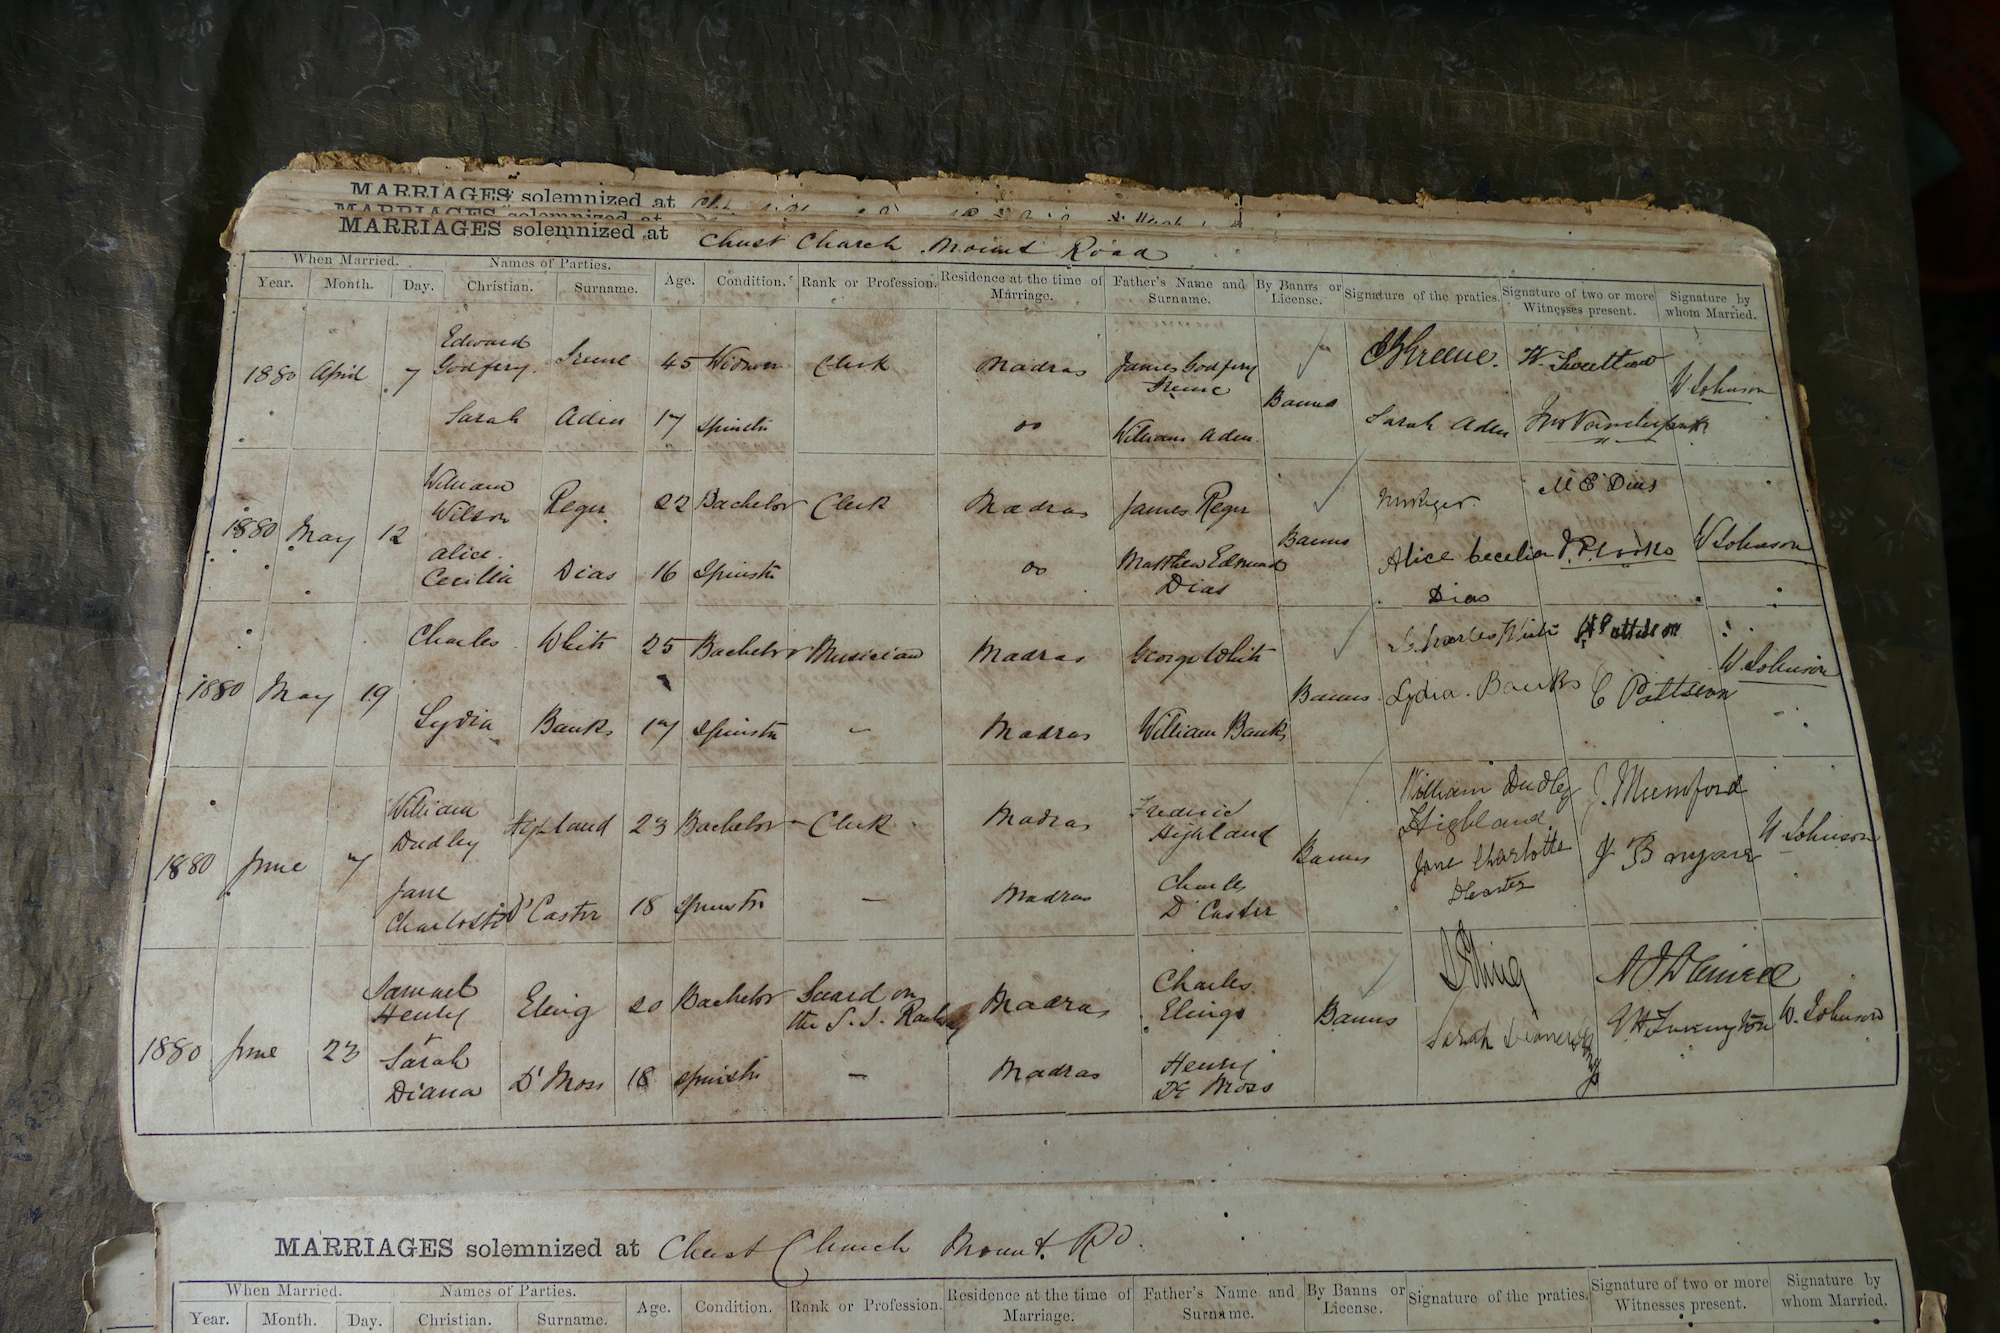 MARRIAGES solemnized at
MARRIAGES solemnized at
MARRIAGES solemnized at Christ Church Mount Road
When Married. Names of Parties. Age. Condition. Rank or Profession. Residence at the time of Marriage. Father's Name and Surname. By Banns or License. Signature of the praties. Signature of two or more Witnesses present. Signature by whom Married.
Year. Month. Day. Christian. Surname.
1880 April 7 Edward Godfery 45 Widower Clerk Madras James Godfery Banns W Johnson
Sarah Aden 17 Spinster do William Aden Sarah Aden
1880 May 12 William Wilson Reger 22 Bachelor Clerk Madras James Reger Banns M E Dias W Johnson
Alice Cecilia Dias 16 Spinster do Matthew Edmund Dias Alice Cecelia Dias
1880 May 19 Charles White 25 Bachelor Musician Madras George White Banns Charles White W. Johnson
Lydia Banks 17 Spinster - Madras William Banks Lydia Banks C Pattison
1880 June 7 William Dudley Highland 23 Bachelor Clerk Madras Frederic Highland Banns William Dudley Highland J. Mumford W Johnson
Jane Charlotte D'Caster 18 Spinster - Madras Charles D'Caster Jane Charlotte
1880 June 23 Samuel Henry Eling 20 Bachelor Guard on the S. I. Railway Madras Charles Elings Banns W. Johnson
Sarah Diana D'Moss 18 Spinster - Madras Henry De Moss Sarah
MARRIAGES solemnized at Christ Church Mount Rd.
When Married. Names of Parties. Age. Condition. Rank or Profession. Residence at the time of Marriage. Father's Name and Surname. By Banns or License. Signature of the praties. Signature of two or more Witnesses present. Signature by whom Married.
Year. Month. Day. Christian. Surname.